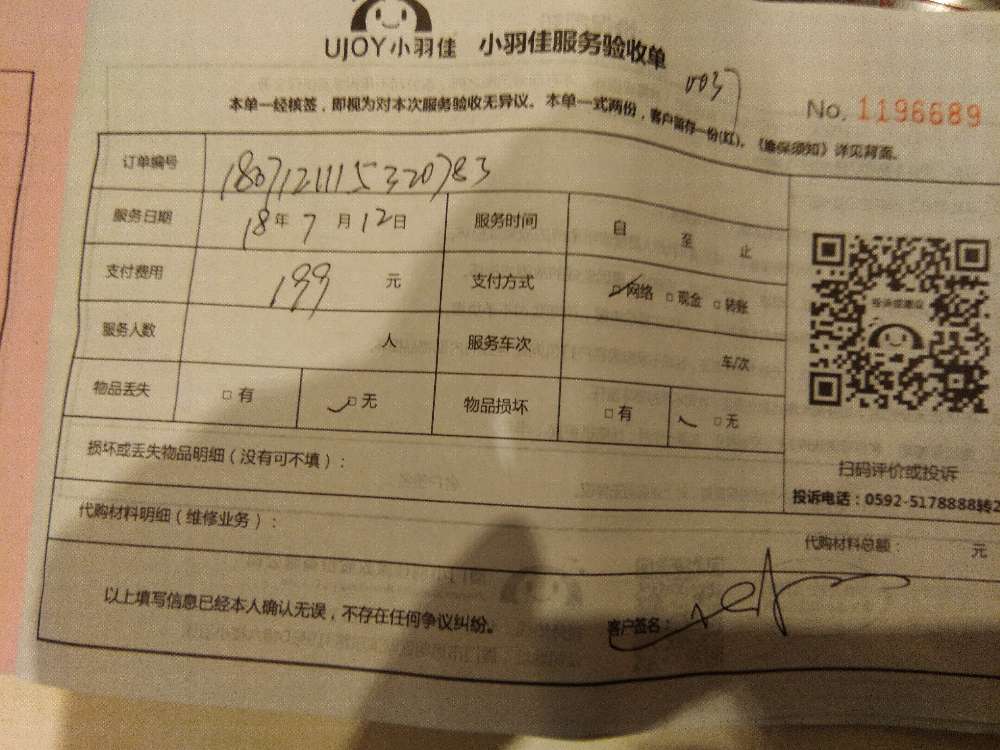 UJOY小羽佳 小羽佳服务验收单
0037
本单一经核签，即视为对本次服务验收无异议。本单一式两份，客户留存一份(红)。《维保须知》详见背面。
No. 1196689
订单编号 1807121115320783
服务日期 18年7月12日 服务时间 自 至 止
支付费用 199 元 支付方式 □网络 □现金 □转账
服务人数 人 服务车次 车/次
物品丢失 □有 □无 物品损坏 □有 □无
投诉或建议
扫码评价或投诉
投诉电话：0592-5178888转2
损坏或丢失物品明细（没有可不填）：
代购材料明细（维修业务）：
代购材料总额： 元
以上填写信息已经本人确认无误，不存在任何争议纠纷。
客户签名：